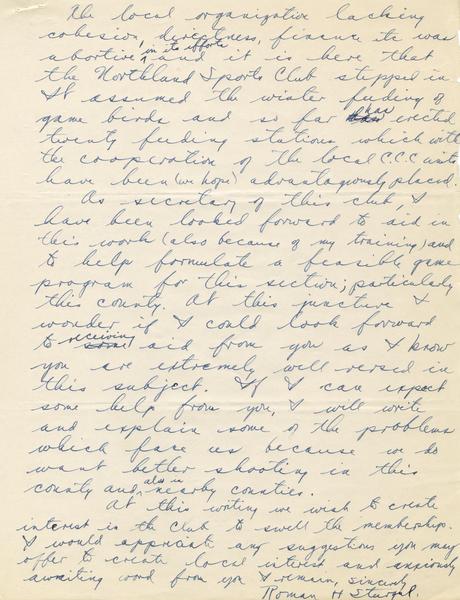 The local organization lacking
cohesion, directness, finance etc was
abortive in its efforts, and it is here that
the Northland Sports Club stepped in
It assumed the winter feeding of
game birds and so far has erected
twenty feeding stations which with
the cooperation of the local C.C.C. units
have been (we hope) advantageously placed.
As secretary of this club, I
have been looked forward to aid in
this work (also because of my training) and
to help formulate a feasible game
program for this section; particularly
this county. At this juncture I
wonder if I could look forward
to receiving some aid from you as I know
you are extremely well versed in
this subject. If I can expect
some help from you, I will write
and explain some of the problems
which face us because we do
want better shooting in this
county and also in nearby counties.
At this writing we wish to create
interest in the club to swell the membership.
I would appreciate any suggestions you may
offer to create local interest and anxiously
awaiting word from you I remain, sincerely
Roman H